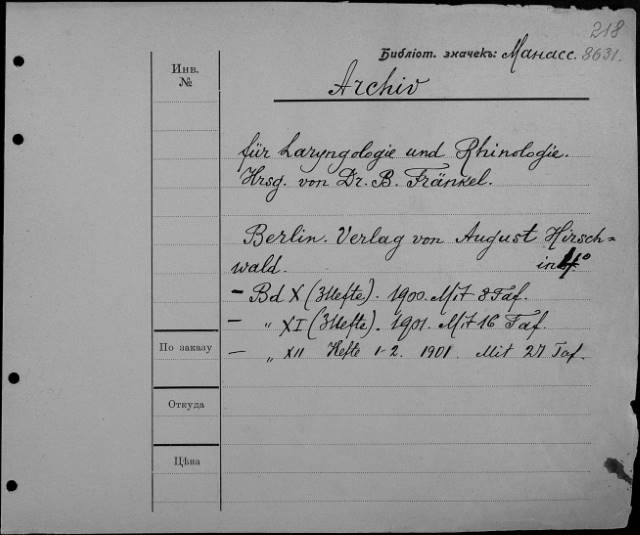 218
Библіот. значекъ: Манасс. 8631.
Инв.
№
Archiv
für Laryngologie und Rhinologie.
Hrsg. von Dr. B. Fränkel.
Berlin. Verlag von August Hirsch=
wald. in 4°
— Bd X (3 Hefte). 1900. Mit 8 Taf.
— „ XI (3 Hefte). 1901. Mit 16 Taf.
По заказу
— „ XII Hefte 1-2. 1901. Mit 27 Taf.
Откуда
Цѣна